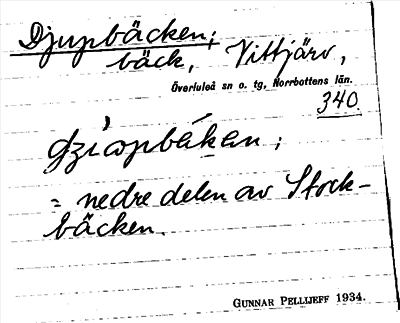 Djupbäcken;
bäck, Vittjärv,
Överluleå sn o. tg, Norrbottens län.
340
= nedre delen av Stock-
bäcken.
GUNNAR PELLIJEFF 1934.